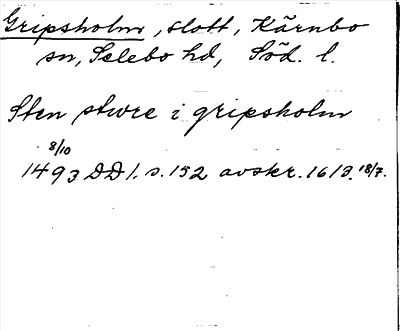 Gripsholm, slott, Kärnbo
sn, Selebo hd, Söd. l.
Sten sture i gripsholm
8/10
1493 DD 1. s. 152 avskr. 1613. 18/7.